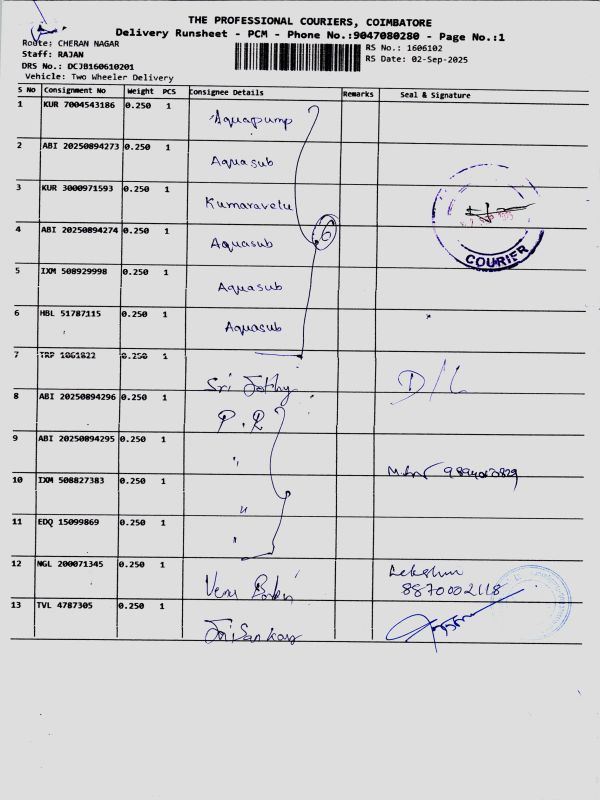 THE PROFESSIONAL COURIERS, COIMBATORE
Delivery Runsheet - PCM - Phone No.:9047080280 - Page No.:1
Route: CHERAN NAGAR
RS No.: 1606102
Staff: RAJAN
RS Date: 02-Sep-2025
DRS No.: DCJB160610201
Vehicle: Two Wheeler Delivery
S No Consignment No Weight PCS Consignee Details Remarks Seal & Signature
1 KUR 7004543186 0.250 1 Aquapump
2 ABI 20250894273 0.250 1 Aquasub
3 KUR 3000971593 0.250 1 Kumaravelu
4 ABI 20250894274 0.250 1 Aquasub 6
COURIER
5 IXM 508929998 0.250 1 Aquasub
6 HBL 51787115 0.250 1 Aquasub
7 TRP 1061822 0.250 1 Sri Jothy D/L
8 ABI 20250894296 0.250 1 P.R
9 ABI 20250894295 0.250 1 "
10 IXM 508827383 0.250 1 "
11 EDQ 15099869 0.250 1 "
12 NGL 200071345 0.250 1 Venu
8870002118
13 TVL 4787305 0.250 1 Jai Sankar